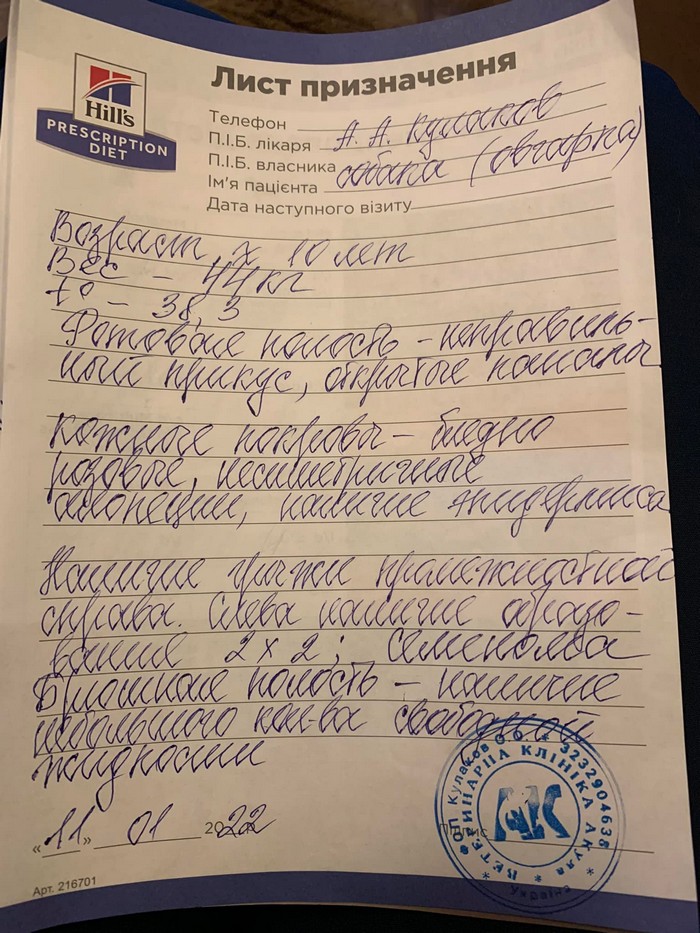 Hill's
PRESCRIPTION
DIET
Лист призначення
Телефон
П.І.Б. лікаря А. А. Кулаков
П.І.Б. власника
Ім'я пацієнта собака (овчарка)
Дата наступного візиту
Возраст ≈ 10 лет
Вес – 44 кг
t° – 38,3
Ротовая полость – неправиль-
ный прикус, открытые каналы
Кожные покровы – бледно
розовые, несиметричные
алопеции, наличие эпидермиса
Наличие грыжи промежностной
справа. Слева наличие образо-
вание 2×2;
Брюшная полость – наличие
небольшого кол-ва свободной
жидкости
«11» 01 2022
Підпис
ФОП Кулаков О.О. * 3232904638
* ВЕТЕРИНАРНА КЛІНІКА Акула *
Україна
Арт. 216701